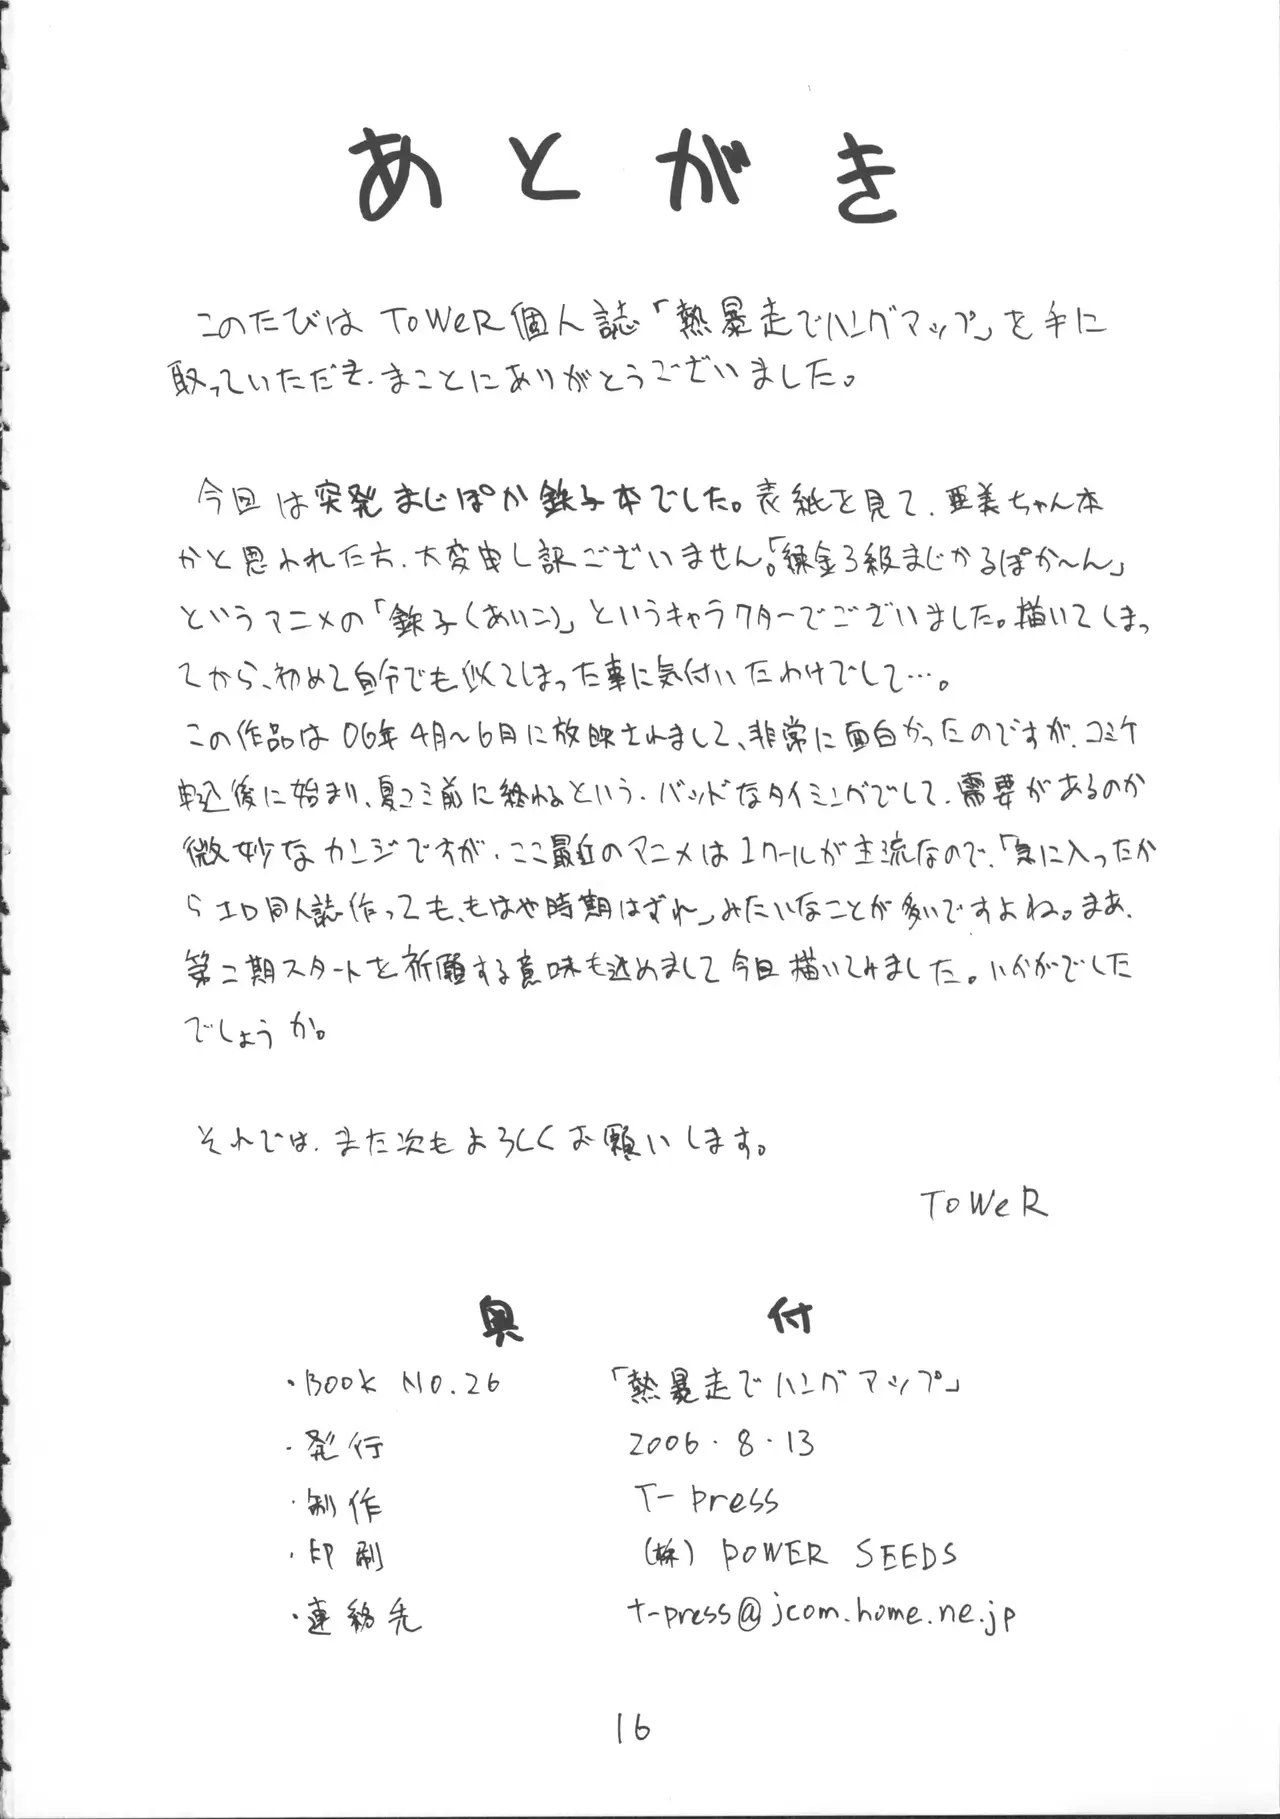 あとがき
このたびは ToWeR個人誌「熱暴走でハングアップ」を手に
取っていただき、まことにありがとうございました。
今回は突発まじぽか鉄子本でした。表紙を見て、亜美ちゃん本
かと思われた方、大変申し訳ございません。「錬金3級まじかるぽか〜ん」
というアニメの「鉄子(あいこ)」というキャラクターでございました。描いてしまっ
てから、初めて自分でも似てしまった事に気付いたわけでして…。
この作品は06年4月〜6月に放映されまして、非常に面白かったのですが、コミケ
申込後に始まり、夏コミ前に終わるという、バッドなタイミングでして、需要があるのか
微妙なカンジですが、ここ最近のアニメは1クールが主流なので、「気に入ったか
らエロ同人誌作っても、もはや時期はずれ」みたいなことが多いですよね。まあ、
第二期スタートを祈願する意味も込めまして今回描いてみました。いかがでした
でしょうか。
それでは、また次もよろしくお願いします。
ToWeR
奥付
・Book No.26 「熱暴走でハングアップ」
・発行 2006・8・13
・制作 T-press
・印刷 (株) POWER SEEDS
・連絡先 t-press@jcom.home.ne.jp
16